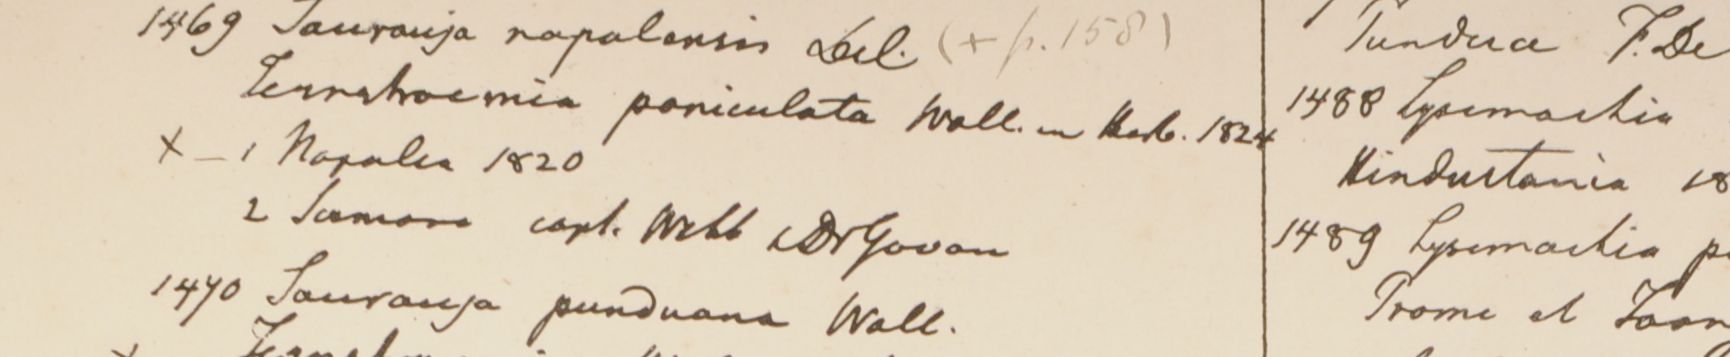 1469 Saurauja napalensis Del. (+ p. 158)
Ternstroemia paniculata Wall. in Herb. 1824
X – 1 Napalia 1820
2 Kamaon capt. Webb & Dr Govan
1470 Saurauja punduana Wall.
Tundua F. De
1488 Lysimachia
Hindustania 18
1489 Lysimachia
Prome et